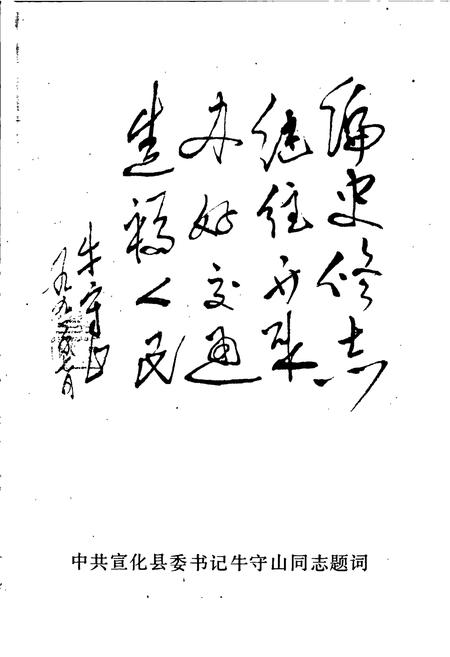 编史修志
继往开来
办好交通
造福人民
牛守山
中共宣化县委书记牛守山同志题词